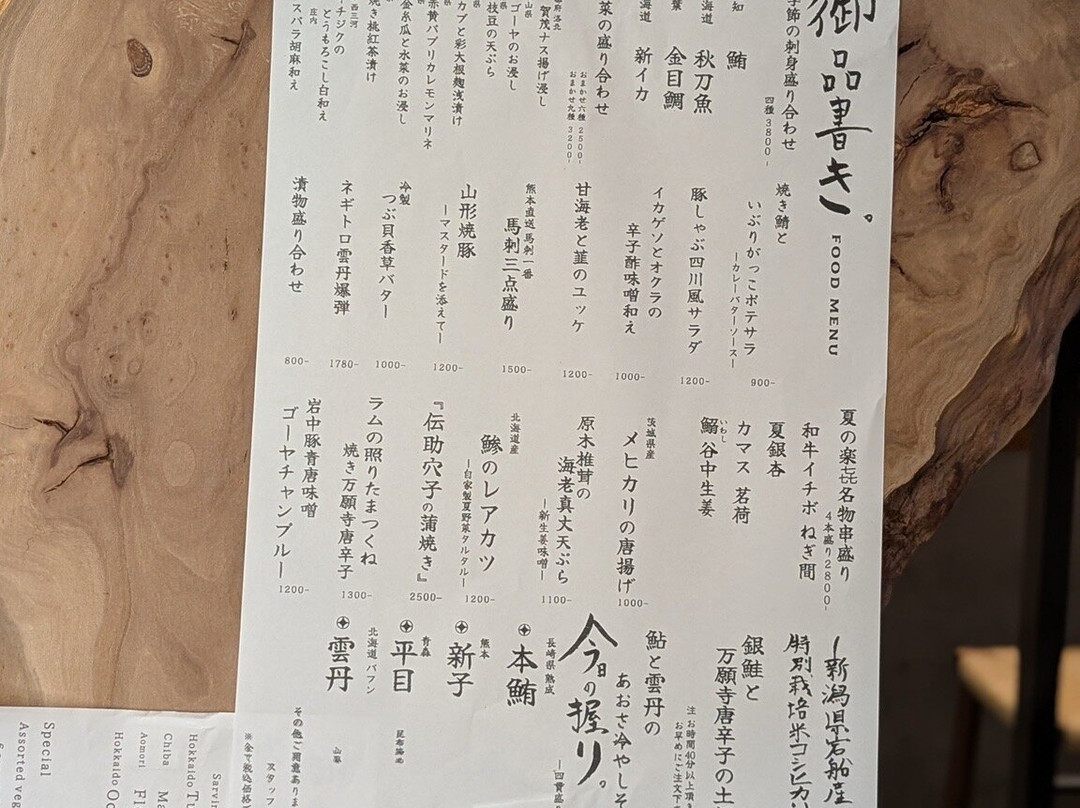 御品書き。
FOOD MENU
季節の刺身盛り合わせ
四種 3800-
知
鮪
海道
秋刀魚
葉
金目鯛
海道
新イカ
菜の盛り合わせ
おまかせ六種 2500-
おまかせ九種 3200-
賀茂ナス揚げ浸し
ゴーヤのお浸し
枝豆の天ぷら
カブと彩大根麹浅漬け
赤黄パプリカレモンマリネ
金糸瓜と水菜のお浸し
焼き桃紅茶漬け
西三河
イチジクの
とうもろこし白和え
庄内
ズバラ胡麻和え
焼き鯖と
いぶりがっこポテサラ
―カレーバターソース―
900-
豚しゃぶ四川風サラダ
1200-
イカゲソとオクラの
辛子酢味噌和え
1000-
甘海老と韮のユッケ
1200-
熊本直送馬刺一番
馬刺三点盛り
1500-
山形焼豚
―マスタードを添えて―
1200-
冷製
つぶ貝香草バター
1000-
ネギトロ雲丹爆弾
1780-
漬物盛り合わせ
800-
夏の楽㐂名物串盛り
4本盛り2800-
和牛イチボ ねぎ間
夏銀杏
カマス 茗荷
鰯谷中生姜
いわし
茨城県産
メヒカリの唐揚げ
1000-
原木椎茸の
海老真丈天ぷら
―新生姜味噌―
1100-
北海道産
鯵のレアカツ
―自家製夏野菜タルタル―
1200-
『伝助穴子の蒲焼き』
2500-
ラムの照りたまつくね
焼き万願寺唐辛子
1300-
岩中豚青唐味噌
ゴーヤチャンプルー
1200-
―新潟県岩船産
特別栽培米コシヒカリ
銀鮭と
万願寺唐辛子の土
注 お時間40分以上頂き
お早めにご注文下
鮎と雲丹の
あおさ冷やしそ
今日の握り。
―四貫盛
長崎県 熟成
本鮪
熊本
新子
青森
平目
昆布〆
北海道 バフン
雲丹
その他ご用意ありま
スタッフ
Special
Assorted veg
Hokkaido
Aomori
Chiba
Hokkaido